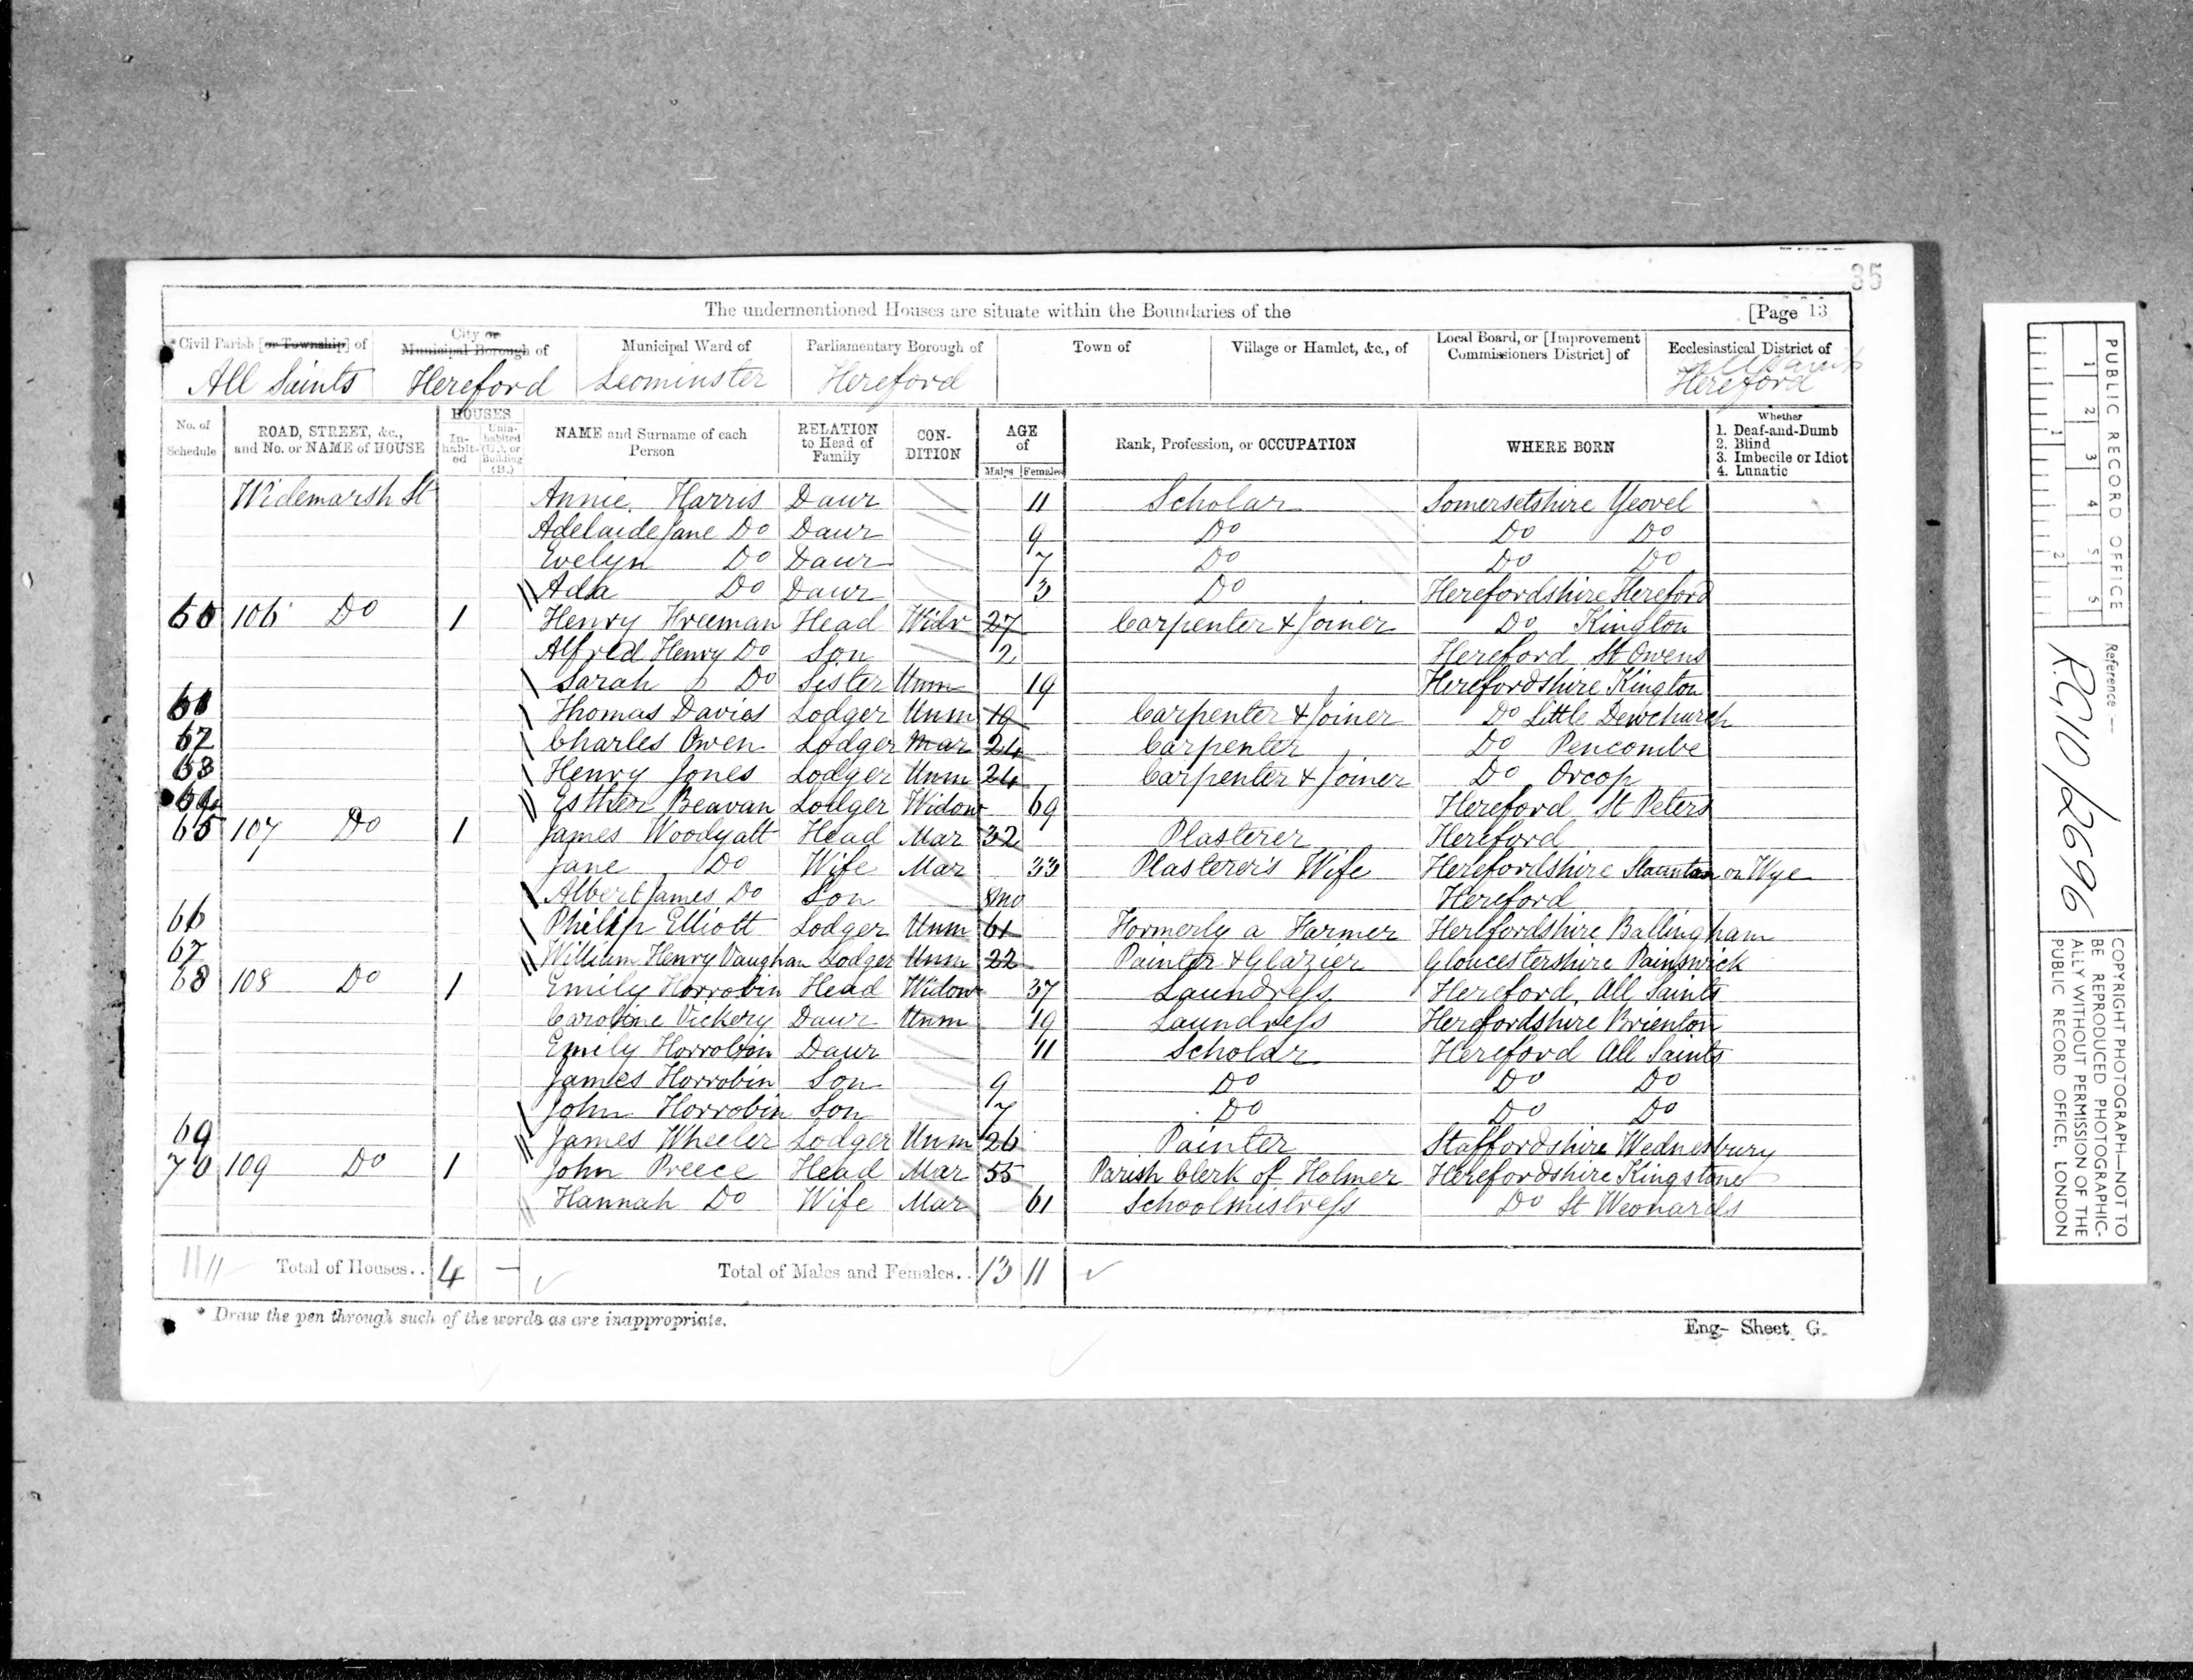 35
The undermentioned Houses are situate within the Boundaries of the [Page 13
*Civil Parish [or Township] of City or Municipal Borough of Municipal Ward of Parliamentary Borough of Town of Village or Hamlet, &c., of Local Board, or [Improvement Commissioners District] of Ecclesiastical District of
All Saints Hereford Leominster Hereford All Saints Hereford
No. of Schedule ROAD, STREET, &c., and No. or NAME of HOUSE HOUSES In-habit-ed Unin-habited (U.), or Building (B.) NAME and Surname of each Person RELATION to Head of Family CON-DITION AGE of Males Females Rank, Profession, or OCCUPATION WHERE BORN Whether 1. Deaf-and-Dumb 2. Blind 3. Imbecile or Idiot 4. Lunatic
Widemarsh St Annie Harris Daur 11 Scholar Somersetshire Yeovel
Adelaide Jane Do Daur 9 Do Do Do
Evelyn Do Daur 7 Do Do Do
Ada Do Daur 3 Do Herefordshire Hereford
60 106 Do 1 Henry Freeman Head Widr 27 Carpenter & Joiner Do Kington
Alfred Henry Do Son 2 Hereford St Owens
Sarah Do Sister Unm 19 Herefordshire Kington
61 Thomas Davies Lodger Unm 19 Carpenter & Joiner Do Little Dewchurch
62 Charles Owen Lodger Mar 24 Carpenter Do Pencombe
63 Henry Jones Lodger Unm 24 Carpenter & Joiner Do Orcop
64 Esther Beavan Lodger Widow 69 Hereford St Peters
65 107 Do 1 James Woodyatt Head Mar 32 Plasterer Hereford
Jane Do Wife Mar 33 Plasterer's Wife Herefordshire Staunton on Wye
Albert James Do Son 8mo Hereford
66 Philip Elliott Lodger Unm 61 Formerly a Farmer Herefordshire Ballingham
67 William Henry Vaughan Lodger Unm 22 Painter & Glazier Gloucestershire Painswick
68 108 Do 1 Emily Horrobin Head Widow 37 Laundress Hereford, All Saints
Caroline Vickery Daur Unm 19 Laundress Herefordshire Brienton
Emily Horrobin Daur 11 Scholar Hereford All Saints
James Horrobin Son 9 Do Do Do
John Horrobin Son 7 Do Do Do
69 James Wheeler Lodger Unm 26 Painter Staffordshire Wednesbury
70 109 Do 1 John Preece Head Mar 55 Parish Clerk of Holmer Herefordshire Kingstone
Hannah Do Wife Mar 61 Schoolmistress Do St Weonards
Total of Houses.. 4 Total of Males and Females.. 13 11
* Draw the pen through such of the words as are inappropriate.
Eng- Sheet G.
PUBLIC RECORD OFFICE
1 2 3 4 5 6
1 2
Reference :—
R.G. 10/2696
COPYRIGHT PHOTOGRAPH—NOT TO
BE REPRODUCED PHOTOGRAPHIC-
ALLY WITHOUT PERMISSION OF THE
PUBLIC RECORD OFFICE, LONDON